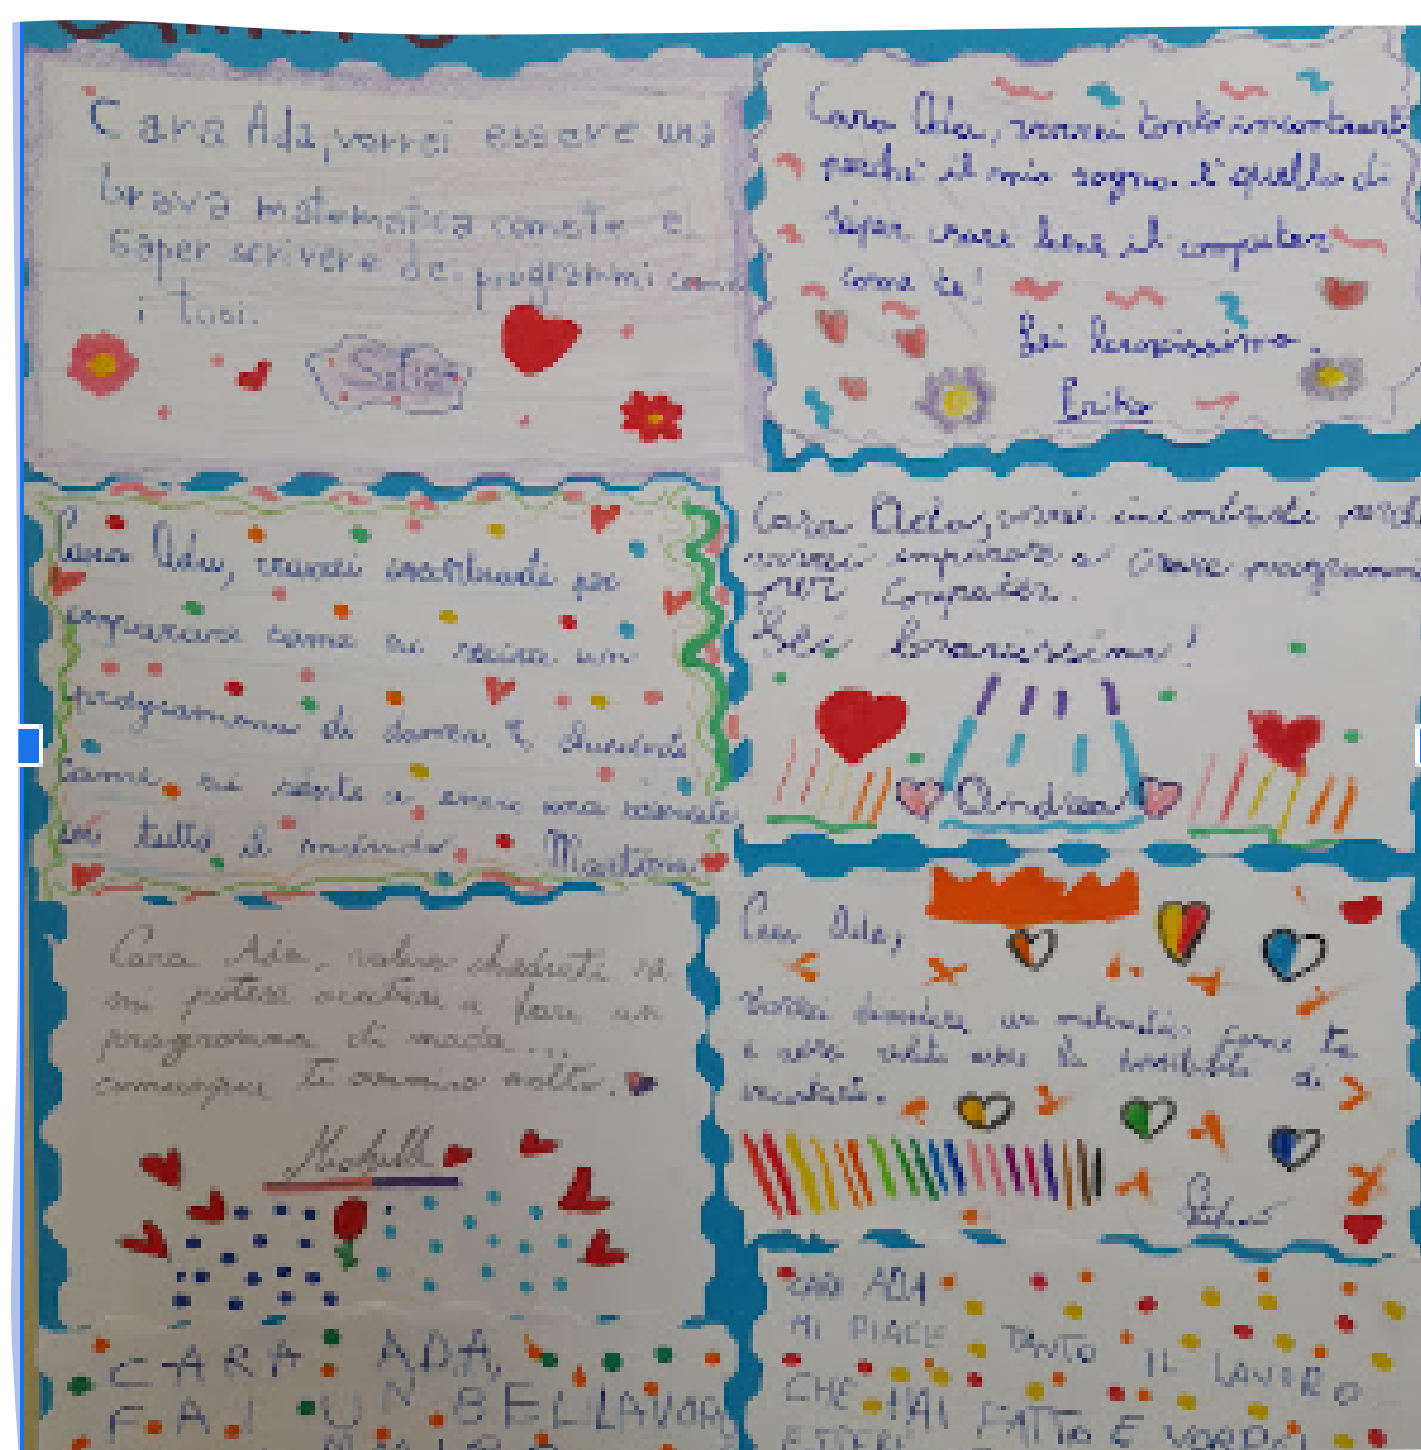 Cara Ada, vorrei essere una
brava matematica come te e
saper scrivere dei programmi come
i tuoi.
Sofia
Cara Ada, vorrei tanto incontrarti
perché il mio sogno è quello di
saper usare bene il computer
come te!
Sei bravissima.
Erika
Cara Ada, vorrei incontrarti per
imparare come si scrive un
programma di danza e
come si sente a essere una scienziata
in tutto il mondo. Martina
Cara Ada, vorrei incontrarti perché
vorrei imparare a creare programmi
per computer.
Sei bravissima!
Andrea
Cara Ada, volevo chiederti se
mi potessi aiutare a fare un
programma di moda...
comunque ti ammiro molto.
Michelle
Cara Ada,
vorrei diventare un matematico come te
e avrei voluto avere la possibilità di
incontrarti.
CARA ADA,
FAI UN BEL LAVORO
CARA ADA
MI PIACE TANTO IL LAVORO
CHE HAI FATTO E VORREI